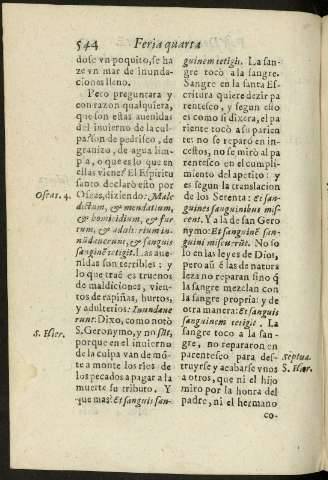 544 Feria quarta
dose vn poquito, se ha
ze vn mar de inunda-
ciones lleno.
Pero preguntara y
con razon qualquiera,
que son estas auenidas
del inuierno de la cul-
pa? son de pedrisco, de
granizo, de agua lim-
pia, o que es lo que en
ellas viene? El Espiritu
santo declaró esto por
Oseas. 4.
Oseas, diziendo: Male
dictum, & mendatium,
& homicidium, & fur
tum, & adulterium in-
nundauerunt, & sanguis
sanguinē tetigit. Las aue-
nidas son terribles: y
lo que traē es truenos
de maldiciones, vien-
tos de rapiñas, hurtos,
y adulterios: Inundaue
runt. Dixo, como notò
S. Hier.
S. Geronymo, y no sin,
porque en el inuierno
de la culpa van de mō-
te a monte los rios de
los pecados a pagar a la
muerte su tributo. Y
que mas? Et sanguis san-
guinem tetigit. La san-
gre tocò a la sangre.
Sangre en la santa Es-
critura quiere dezir pa
rentesco, y segun esso
es como si dixera, el pa
riente tocò a su parien
te: no se reparò en in-
cestos, no se mirò al pa
rentesco en el cumpli-
miento del apetito: y
es segun la translacion
de los Setenta: Et san-
guines sanguinibus mis-
cent. Y a la de san Gero
nymo: Et sanguinē san-
guini miscuerūt. No so
lo en las leyes de Dios,
pero aū ē las de natura
leza no reparan sino q̄
la sangre mezclan con
la sangre propria: y de
otra manera: Et sanguis
sanguinem tetigit. La
sangre toco a la san-
gre, no repararon en
parentesco para des-
Septua.
truyrse y acabarse vnos
S. Hier.
a otros, que ni el hijo
mirò por la honra del
padre, ni el hermano
co-